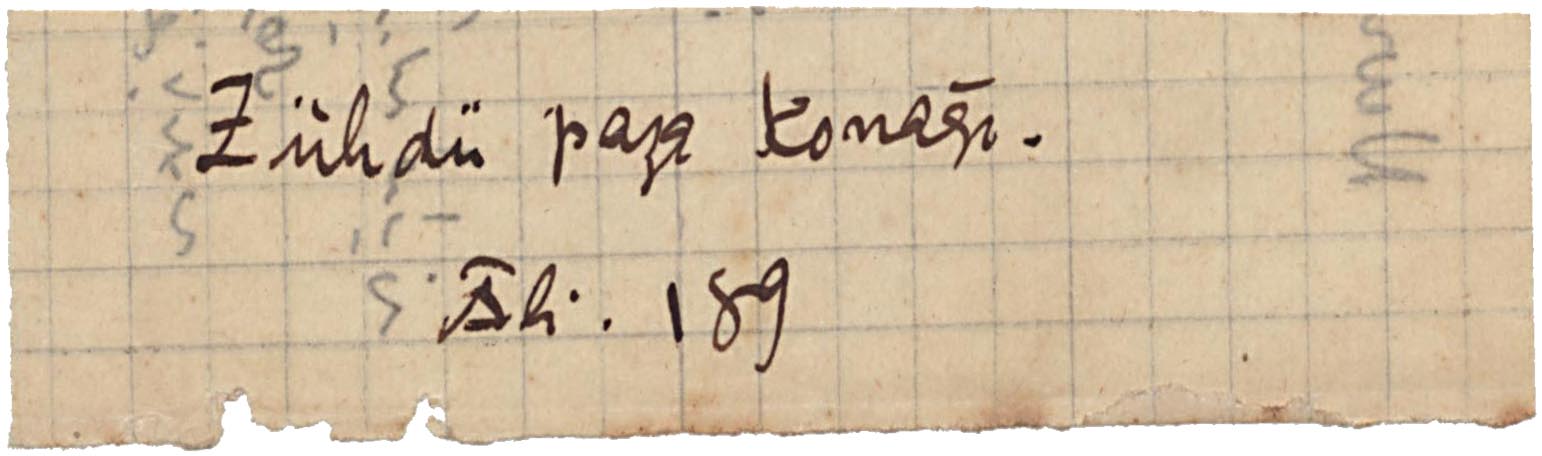 Zühdü paşa konağı.
Âli. 189